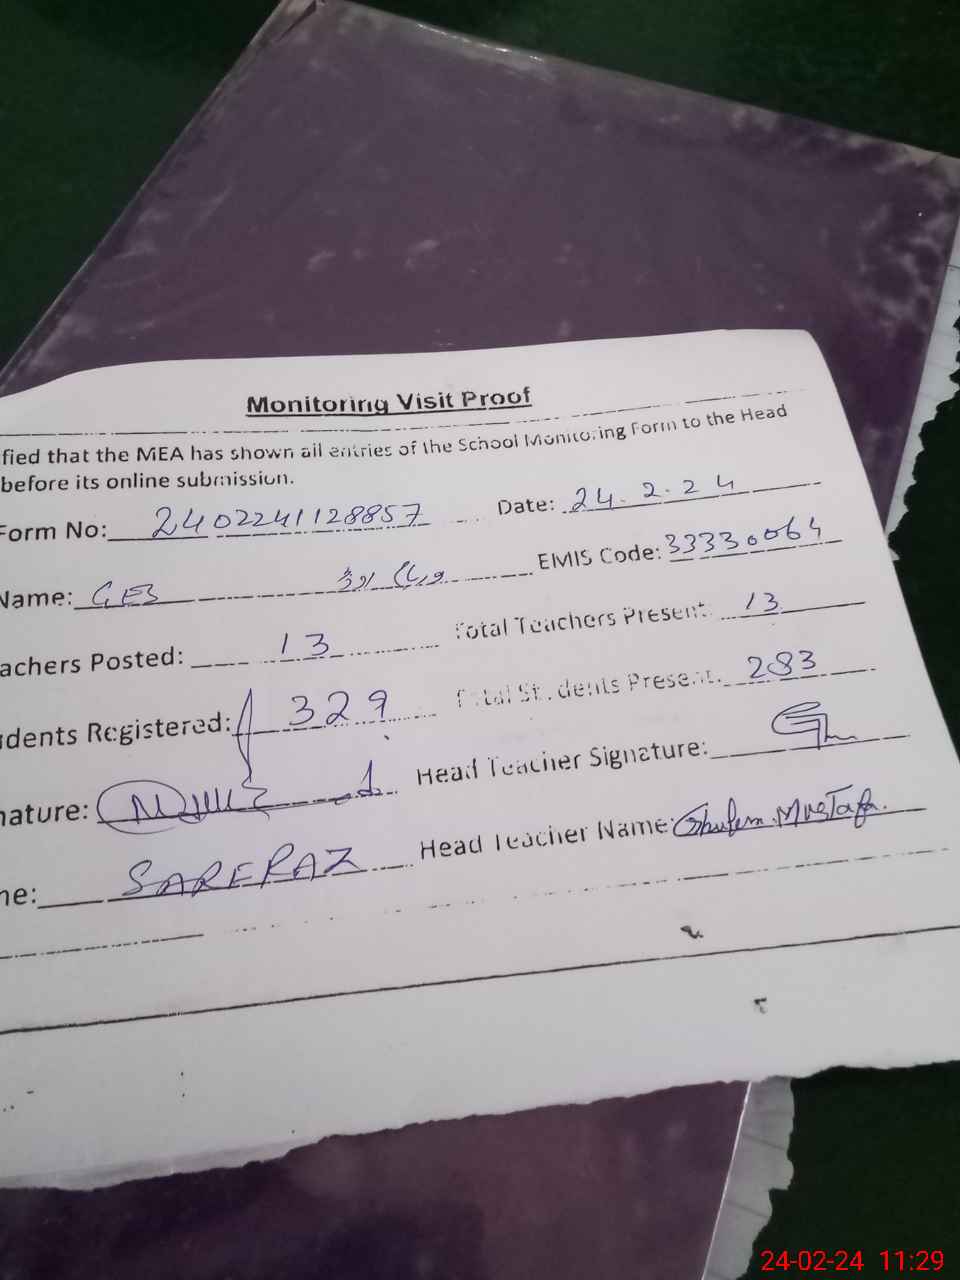 Monitoring Visit Proof
fied that the MEA has shown all entries of the School Monitoring Form to the Head
before its online submission.
Form No: 2402241128857 Date: 24.2.24
Name: GES EMIS Code: 33330064
achers Posted: 13 Total Teachers Present: 13
dents Registered: 329 Total Students Present: 283
nature: Head Teacher Signature:
me: SARFRAZ Head Teacher Name: Ghulam Mustafa.
24-02-24 11:29